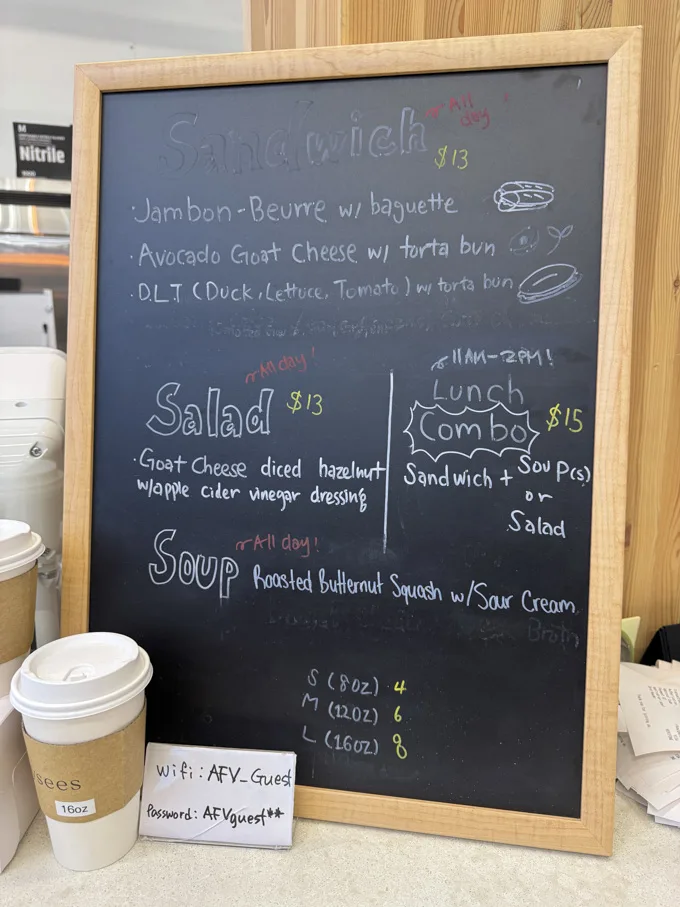 M
Nitrile
Sandwich
All day!
$13
·Jambon-Beurre w/ baguette
·Avocado Goat Cheese w/ torta bun
·D.L.T (Duck, Lettuce, Tomato) w/ torta bun
All day!
Salad $13
·Goat Cheese diced hazelnut
w/apple cider vinegar dressing
11AM-2PM!
Lunch
Combo $15
Sandwich + Soup(s)
or
Salad
All day!
Soup Roasted Butternut Squash w/Sour Cream
Broth
S (8oz) 4
M (12oz) 6
L (16oz) 8
sees
16oz
Wifi: AFV_Guest
Password: AFVguest**